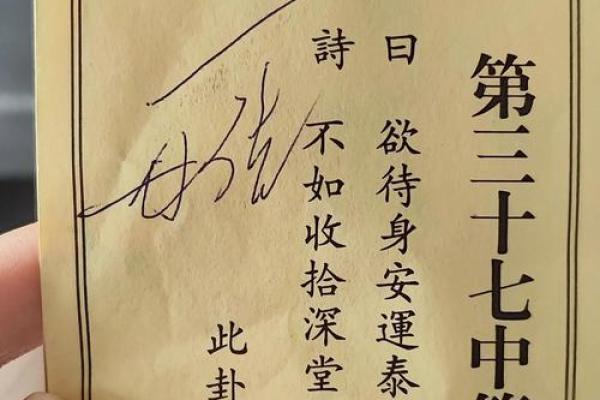 第三十七中
曰 欲待身安運泰
詩 不如收拾深堂
此卦